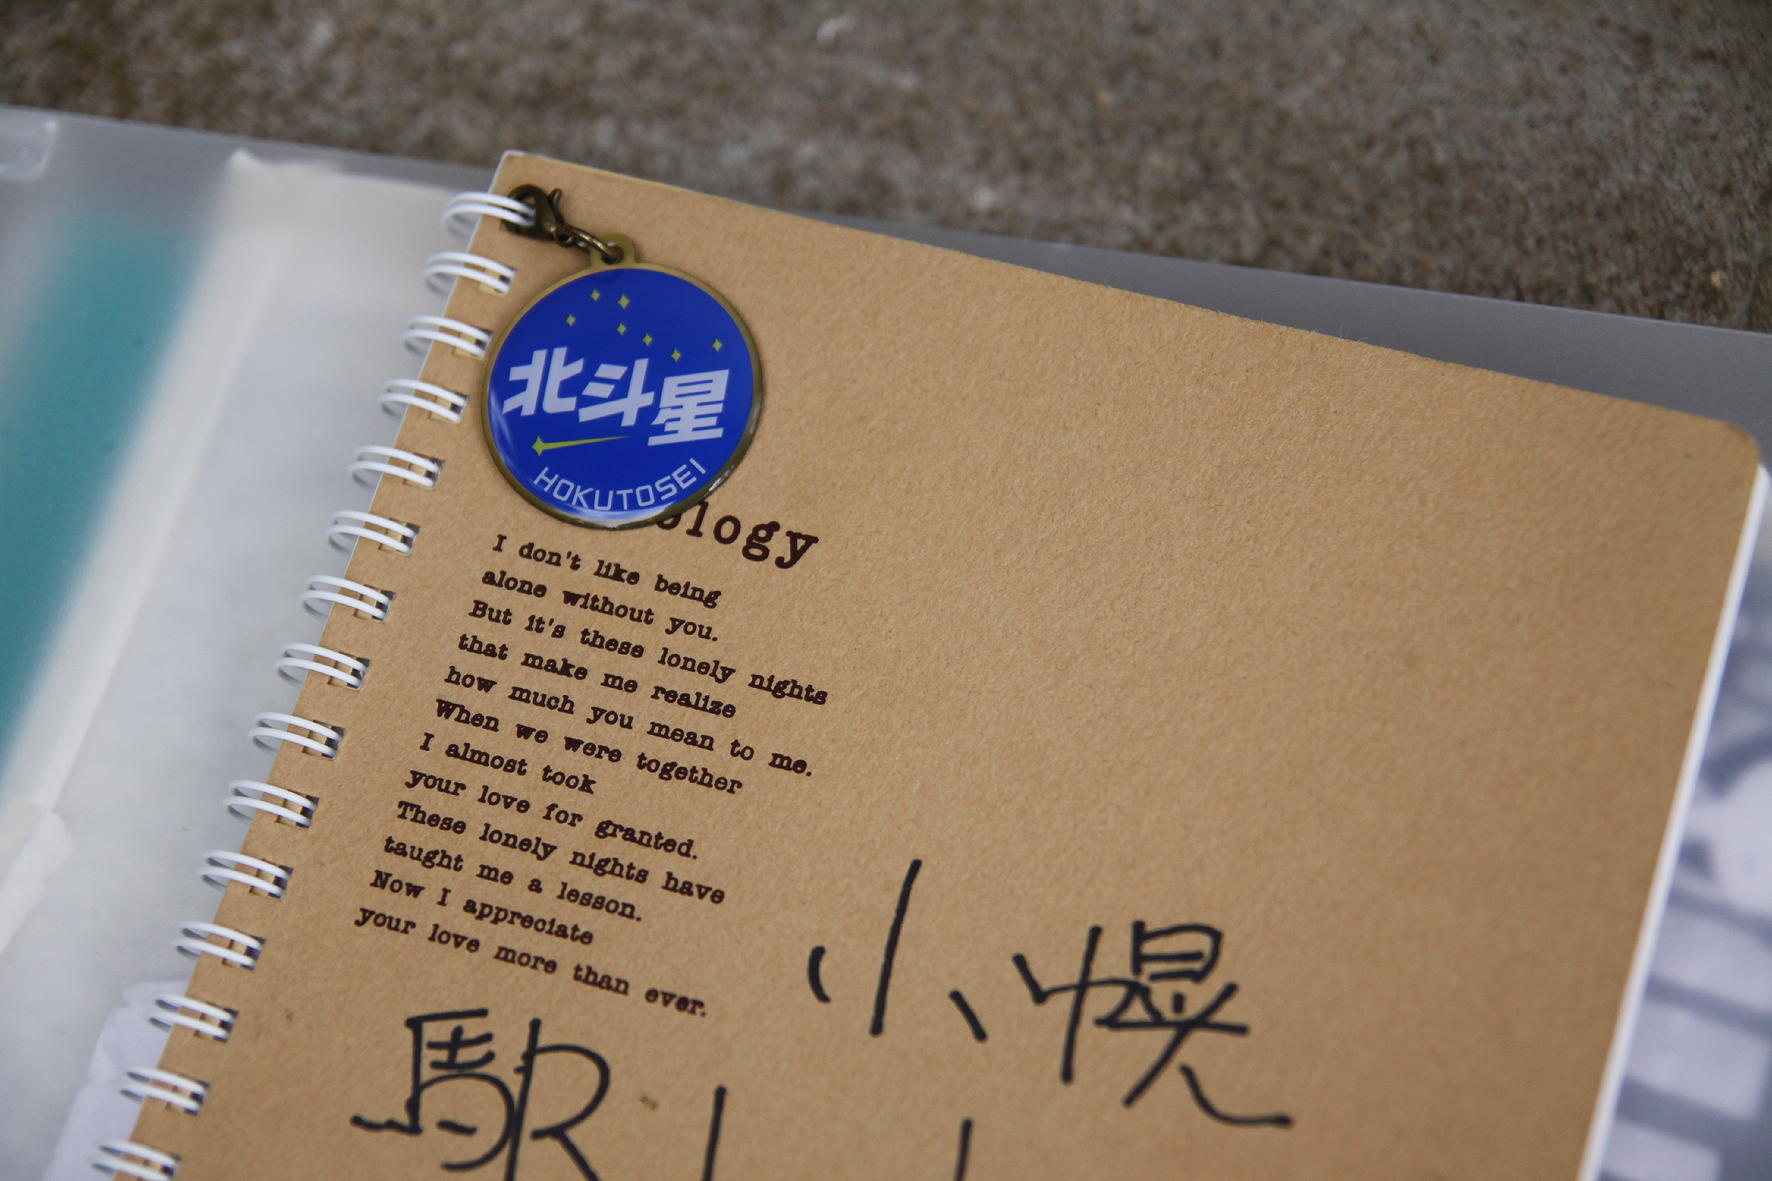 北斗星
HOKUTOSEI
ology
I don't like being
alone without you.
But it's these lonely nights
that make me realize
how much you mean to me.
When we were together
I almost took
your love for granted.
These lonely nights have
taught me a lesson.
Now I appreciate
your love more than ever.
小幌
駅